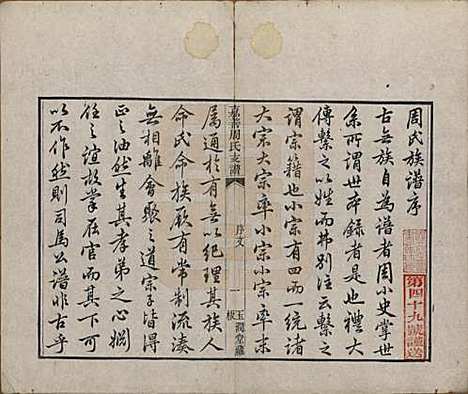 周氏族譜序
古無族自為譜者周小史掌世
系所謂世本錄者是也禮大
傳繫之以姓而弗別注云繫之
謂宗籍也小宗有四而一統諸
大宗大宗率小宗小宗率末
嘉善周氏支譜
序文
一
玉潤堂藏
板
屬通於有無以紀理其族人
命氏命族厥有常制流湊
無相離會聚之道宗子皆得
正之油然生其孝弟之心嫺
任之誼故掌在官而其下可
以不作然則司馬公譜非古乎
第四十九號譜送